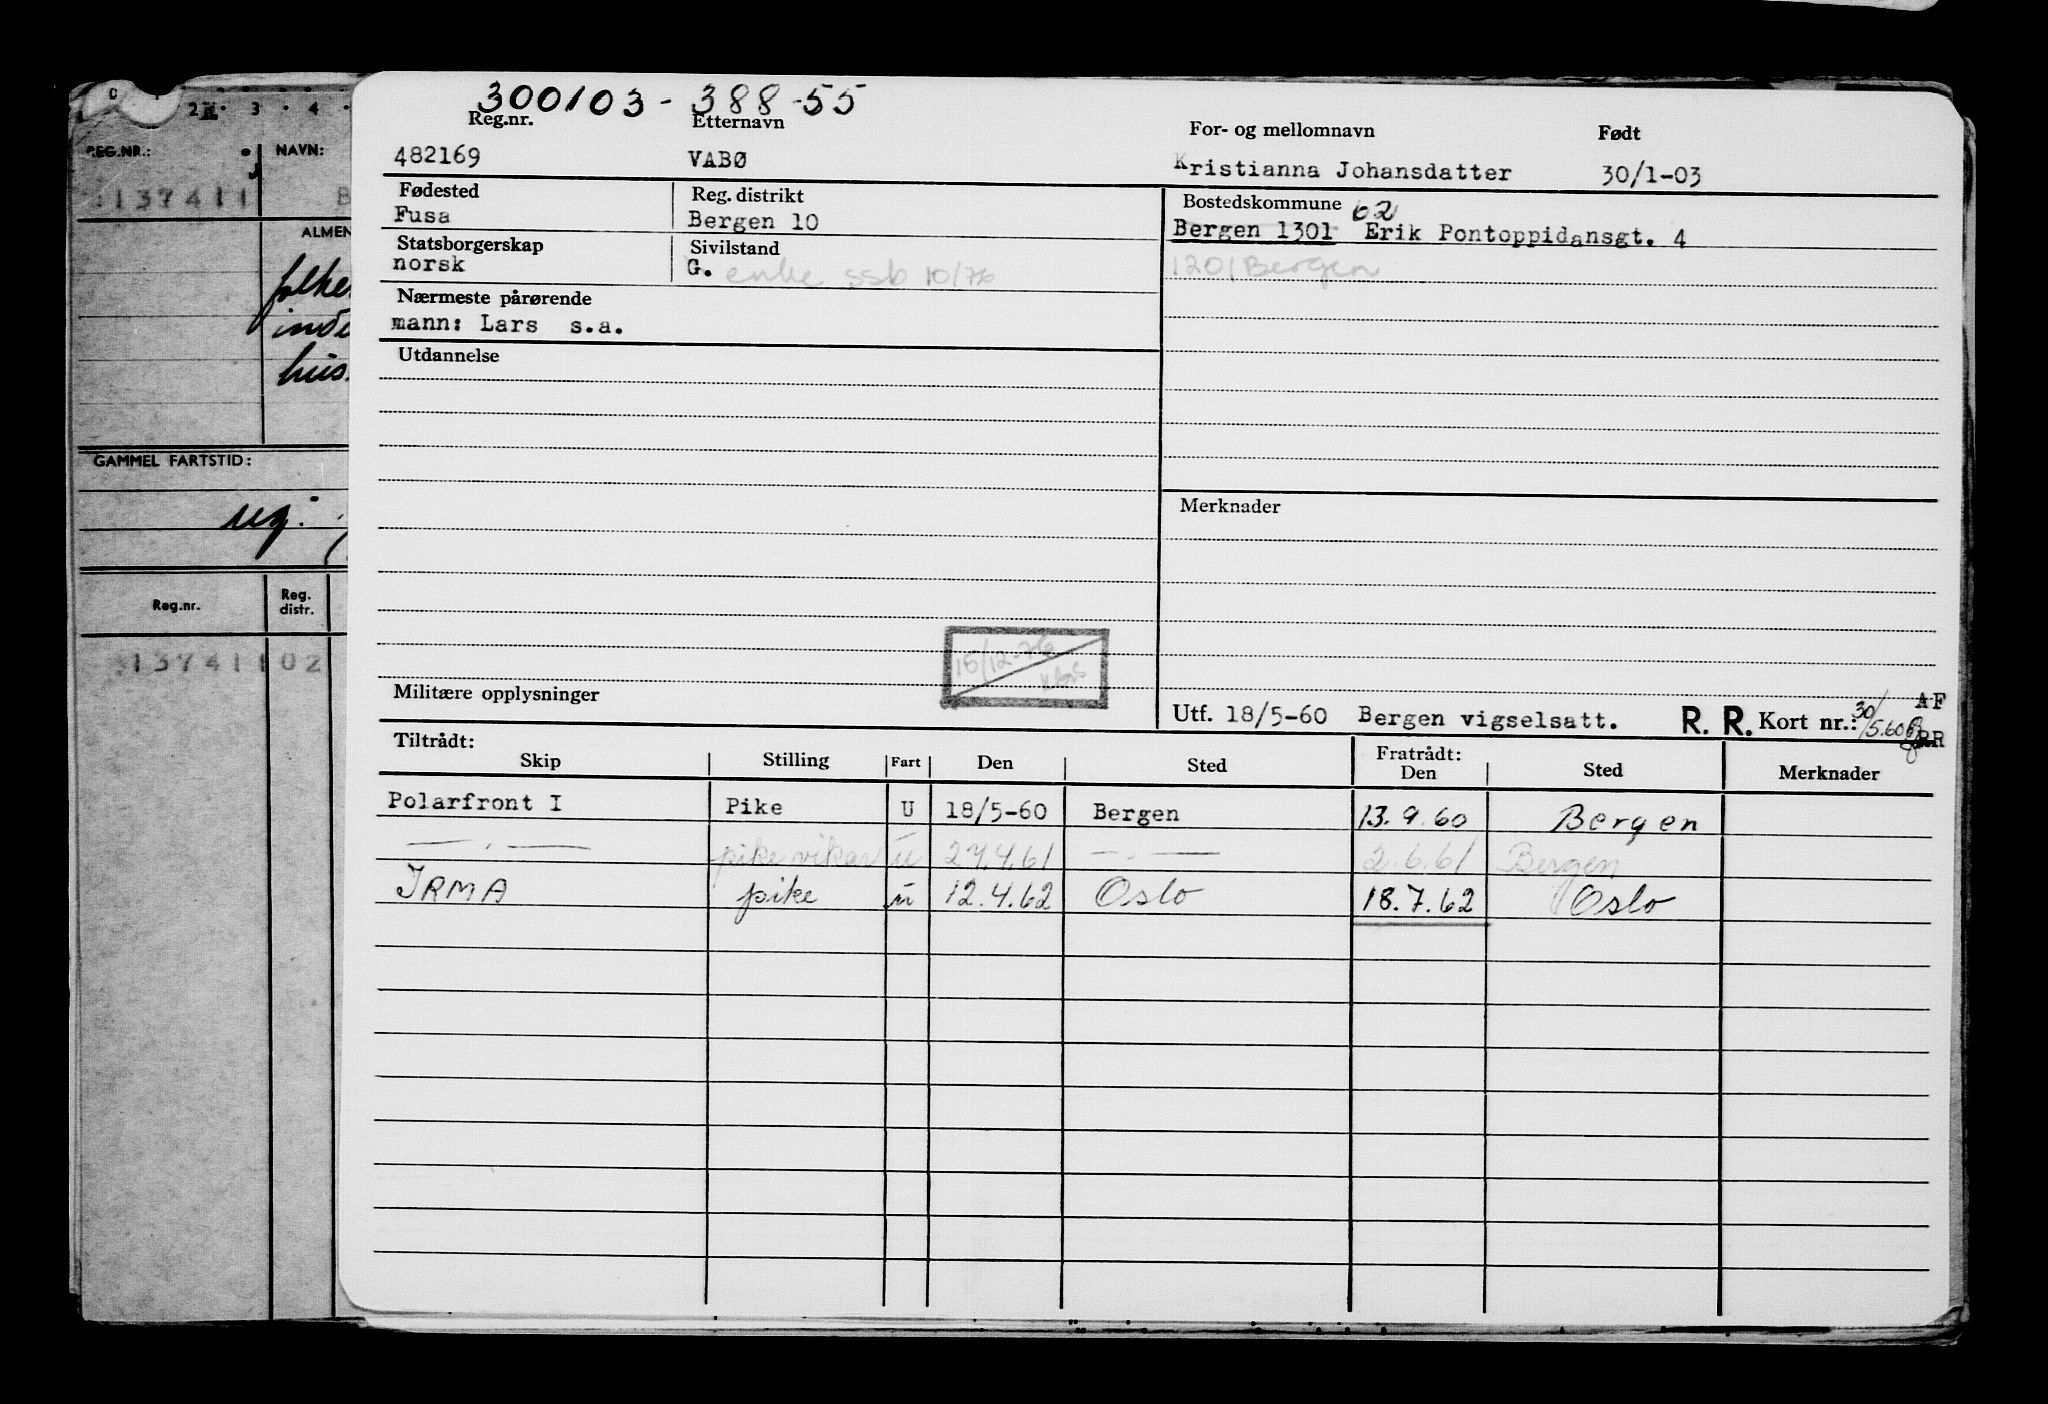 300103 - 388-55
Reg.nr. Etternavn For- og mellomnavn Født
482169 VABØ Kristianna Johansdatter 30/1-03
Fødested Reg. distrikt Bostedskommune
Fusa Bergen 10 62
Bergen 1301 Erik Pontoppidansgt. 4
Statsborgerskap Sivilstand
norsk G. enke ssb 10/76 1201 Bergen
Nærmeste pårørende
mann: Lars s.a.
Utdannelse
Merknader
15/12-76
Militære opplysninger
Utf. 18/5-60 Bergen vigselsatt. R. R. Kort nr.: 30/5.60 AF
RR
Tiltrådt: Fratrådt:
Skip Stilling Fart Den Sted Den Sted Merknader
Polarfront I Pike U 18/5-60 Bergen 13.9.60 Bergen
— . — pike vikar u 27.4.61 — . — 2.6.61 Bergen
IRMA pike u 12.4.62 Oslo 18.7.62 Oslo
2 · 3 · 4 ·
REG.NR.: NAVN:
137411 B
ALMEN
GAMMEL FARTSTID:
Reg.nr. Reg. distr.
137411 02